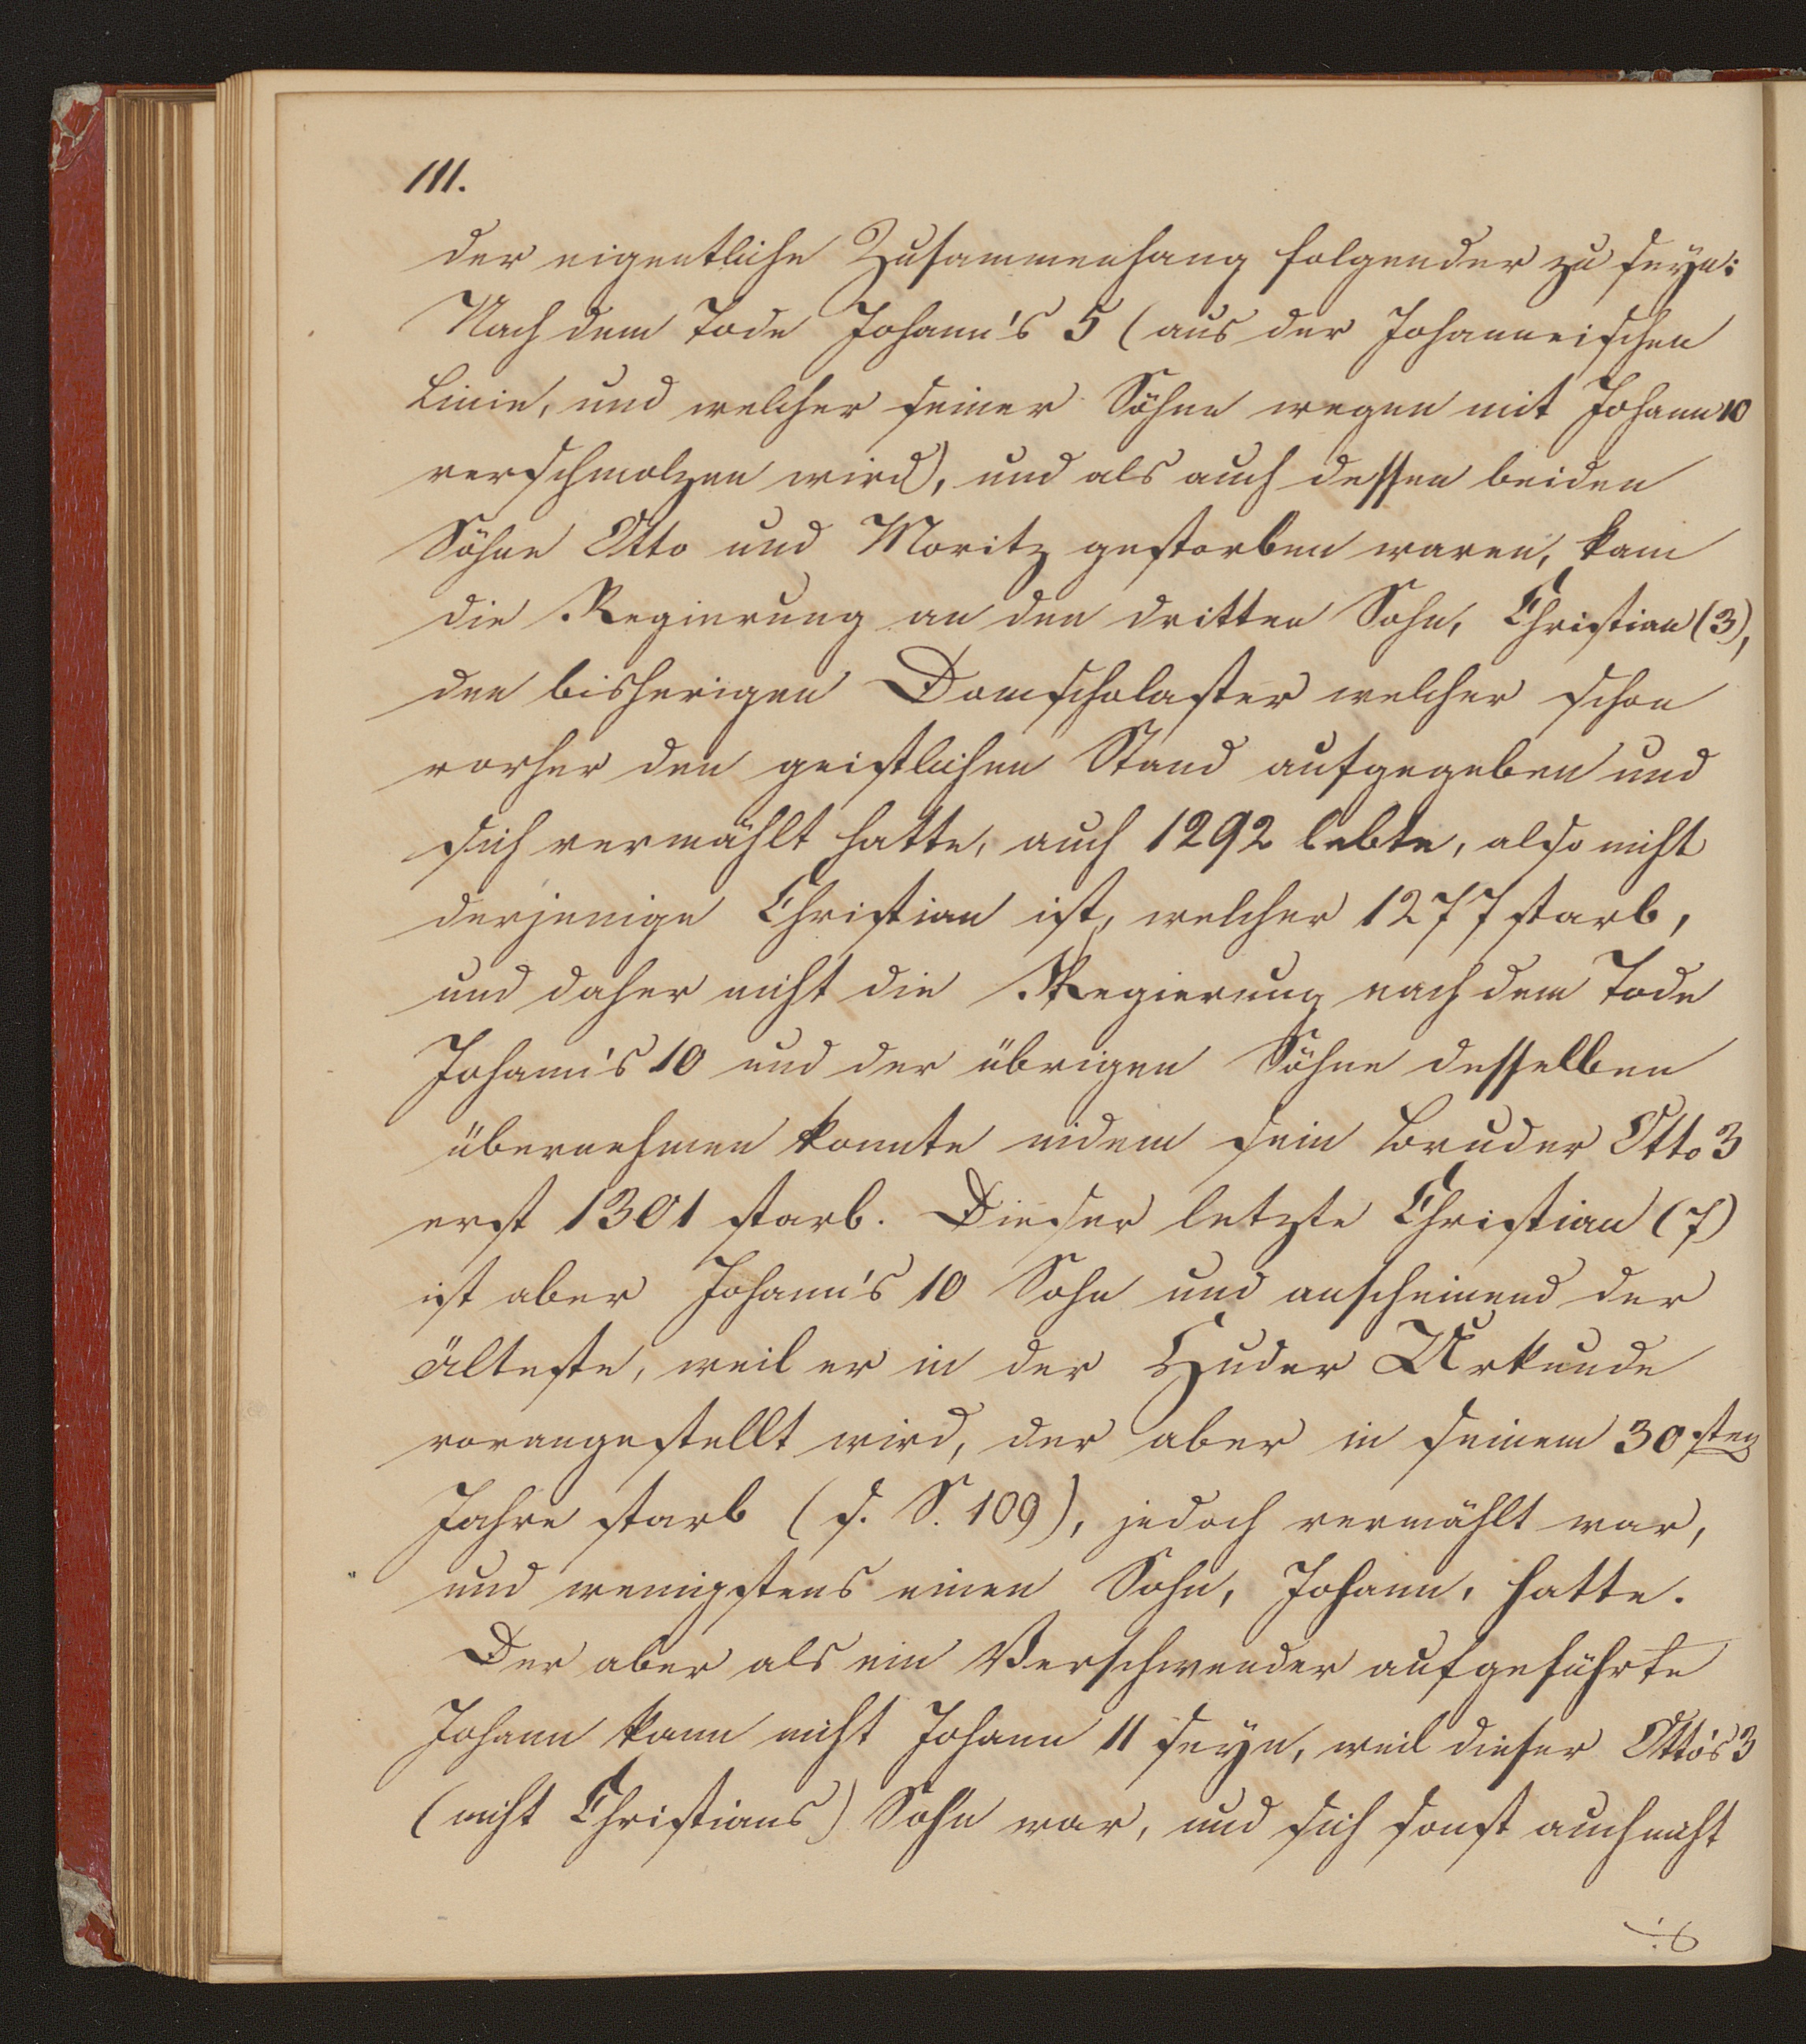 111.
der eigentliche Zusammenhang folgender zu seyn:
Nach dem Tode Johann's 5 (aus der Johanneischen
Linie, und welcher seiner Söhne wegen mit Johann 10
verschmolzen wird), und als auch dessen beiden
Söhne Otto und Moritz gestorben waren, kam
die Regierung an den dritten Sohn, Christian (3),
den bisherigen Domscholaster welcher schon
vorher den geistlichen Stand aufgegeben und
sich vermählt hatte, auch 1292 lebte, also nicht
derjenige Christian ist, welcher 1277 starb,
und daher nicht die Regierung nach dem Tode
Johann's 10 und der übrigen Söhne desselben
übernehmen konnte indem sein Bruder Otto 3
erst 1301 starb. Dieser letzte Christian (7)
ist aber Johann's 10 Sohn und anscheinend der
älteste, weil er in der Huder Urkunde
vorangestellt wird, der aber in seinem 30sten
Jahre starb (s. S. 109), jedoch vermählt war,
und wenigstens einen Sohn, Johann, hatte.
Der aber als ein Verschwender aufgeführte
Johann kann nicht Johann 11 seyn, weil dieser Otto's 3
(nicht Christians) Sohn war, und sich sonst auch nicht